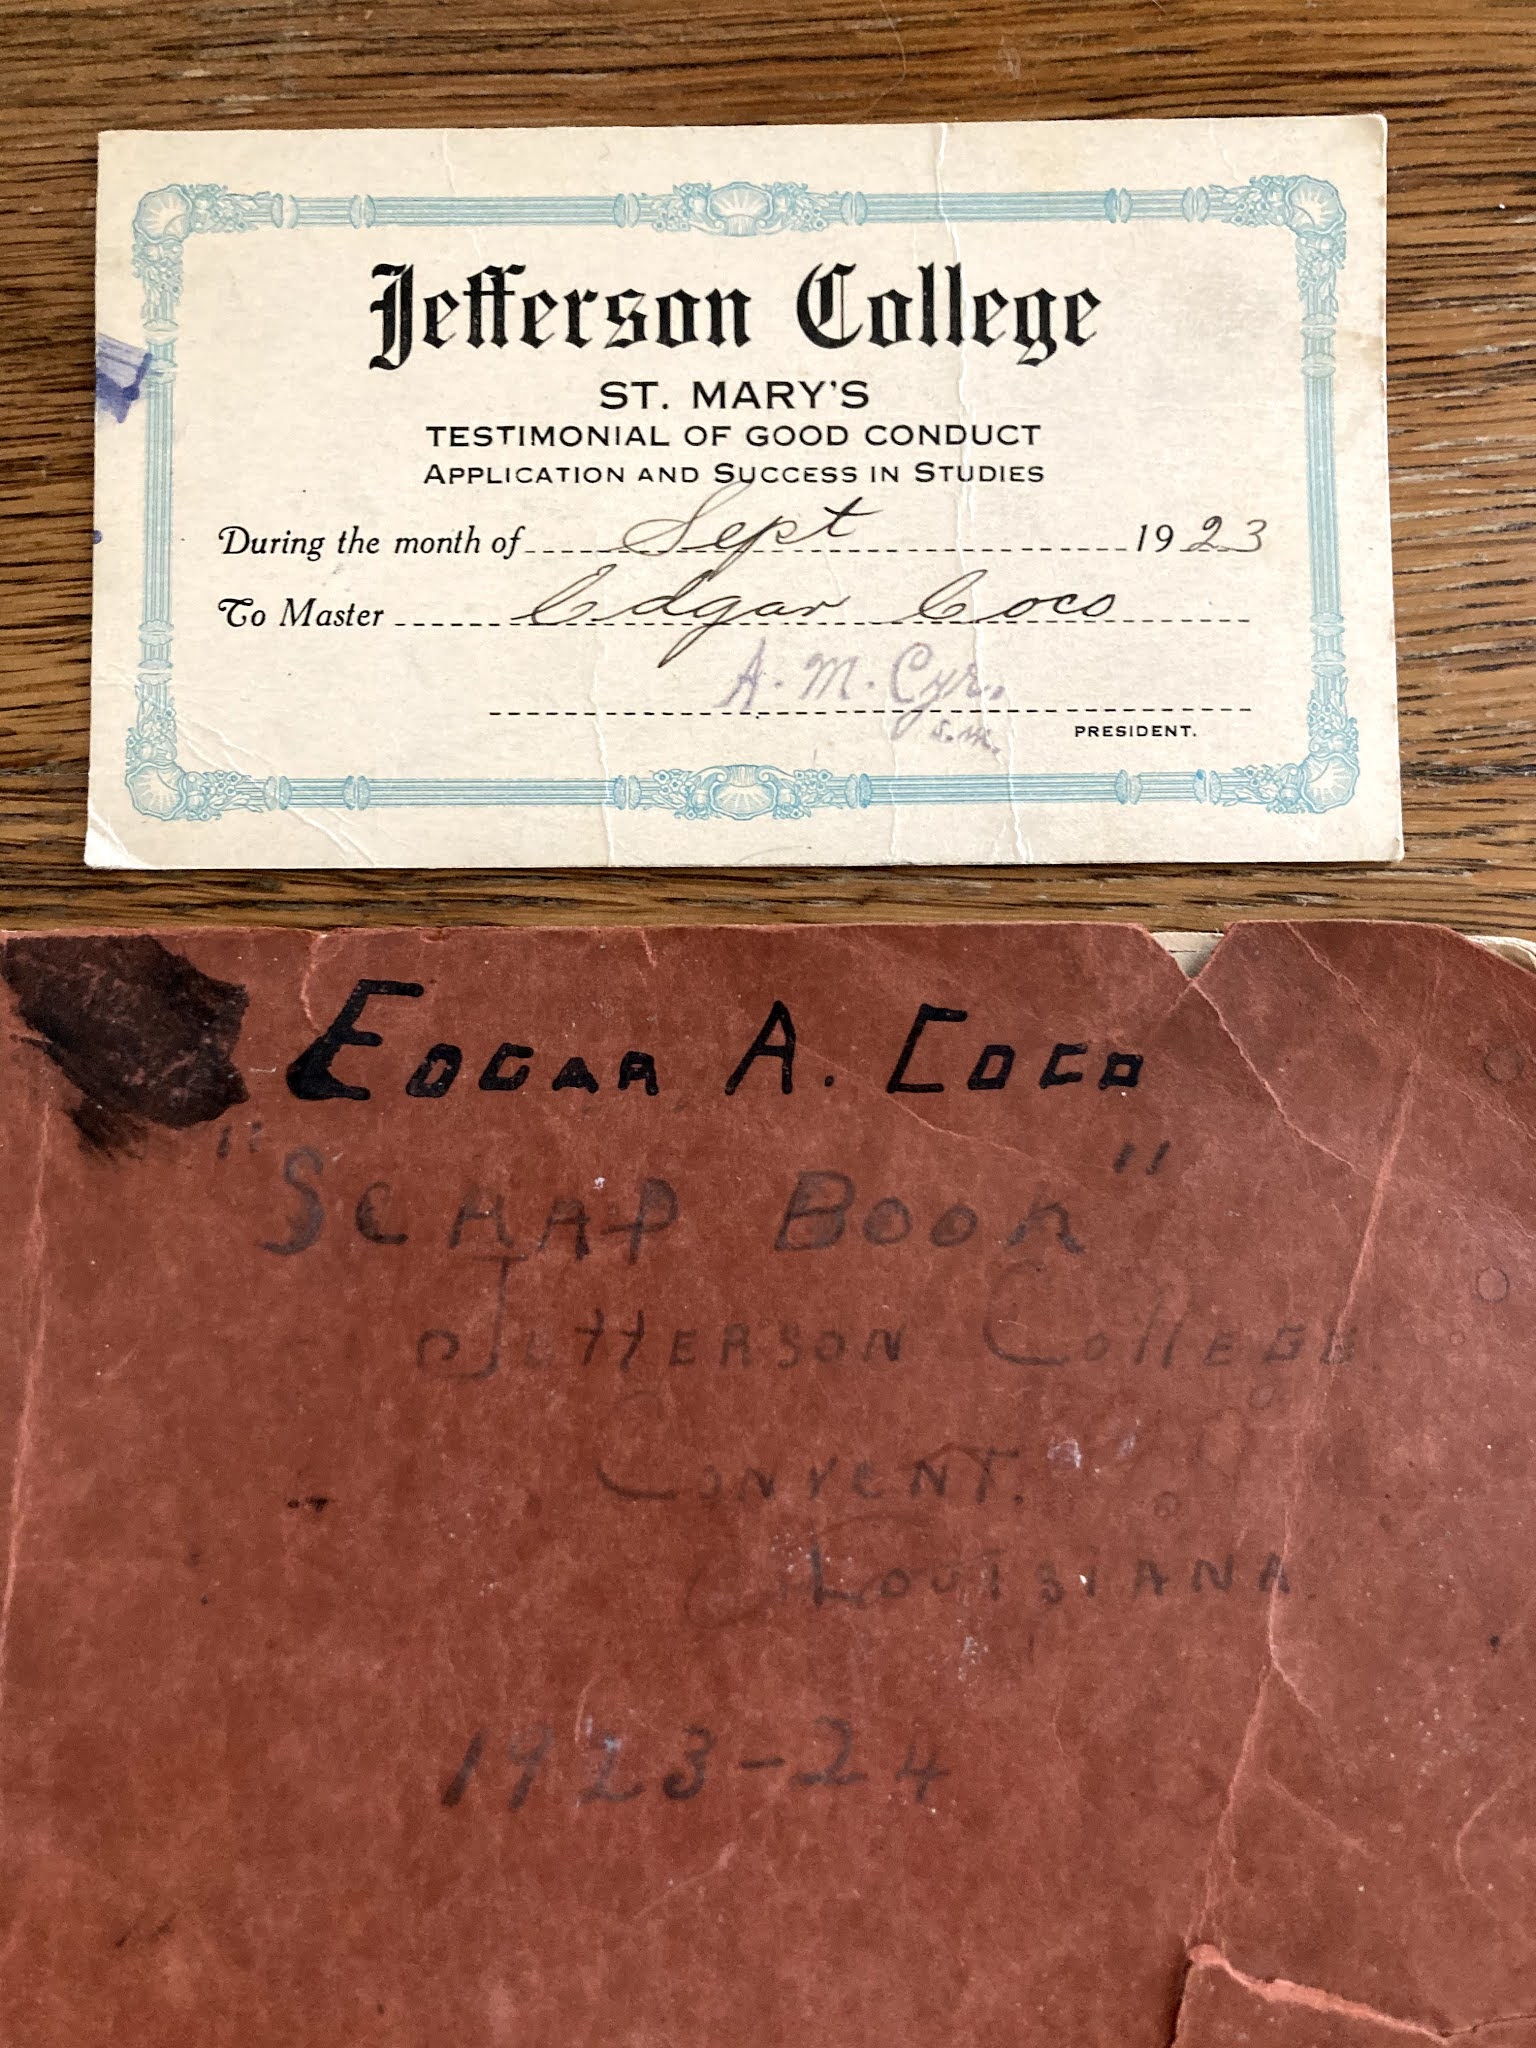 Jefferson College
ST. MARY'S
TESTIMONIAL OF GOOD CONDUCT
APPLICATION AND SUCCESS IN STUDIES
During the month of Sept 1923
To Master Edgar Coco
A. M. Cyr.
S.M. PRESIDENT.
EDGAR A. COCO
"SCRAP BOOK"
JEFFERSON COLLEGE.
CONVENT.
LOUISIANA.
1923-24